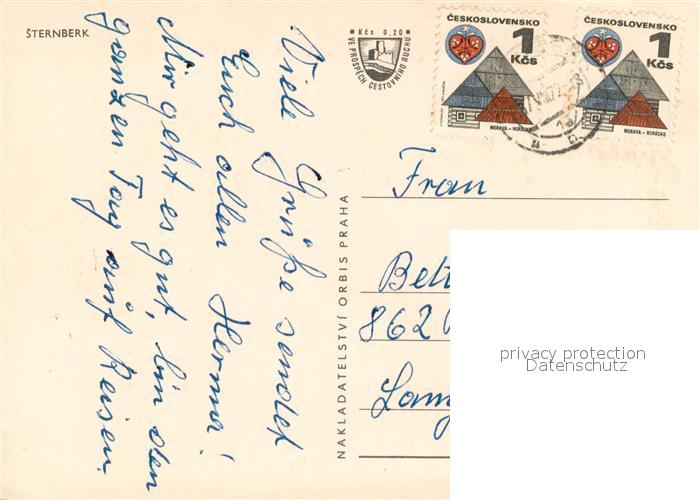 ŠTERNBERK
Viele Grüße sendet
Euch allen Herma!
Mir geht es gut, bin den
ganzen Tag auf Reisen.
NAKLADATELSTVÍ ORBIS PRAHA
Kčs 0,20
VE PROSPĚCH CESTOVNÍHO RUCHU
ČESKOSLOVENSKO
1
Kčs
MORAVA - HORÁCKO
ČESKOSLOVENSKO
1
Kčs
MORAVA - HORÁCKO
Frau
Belt
862
Lam
privacy protection
Datenschutz